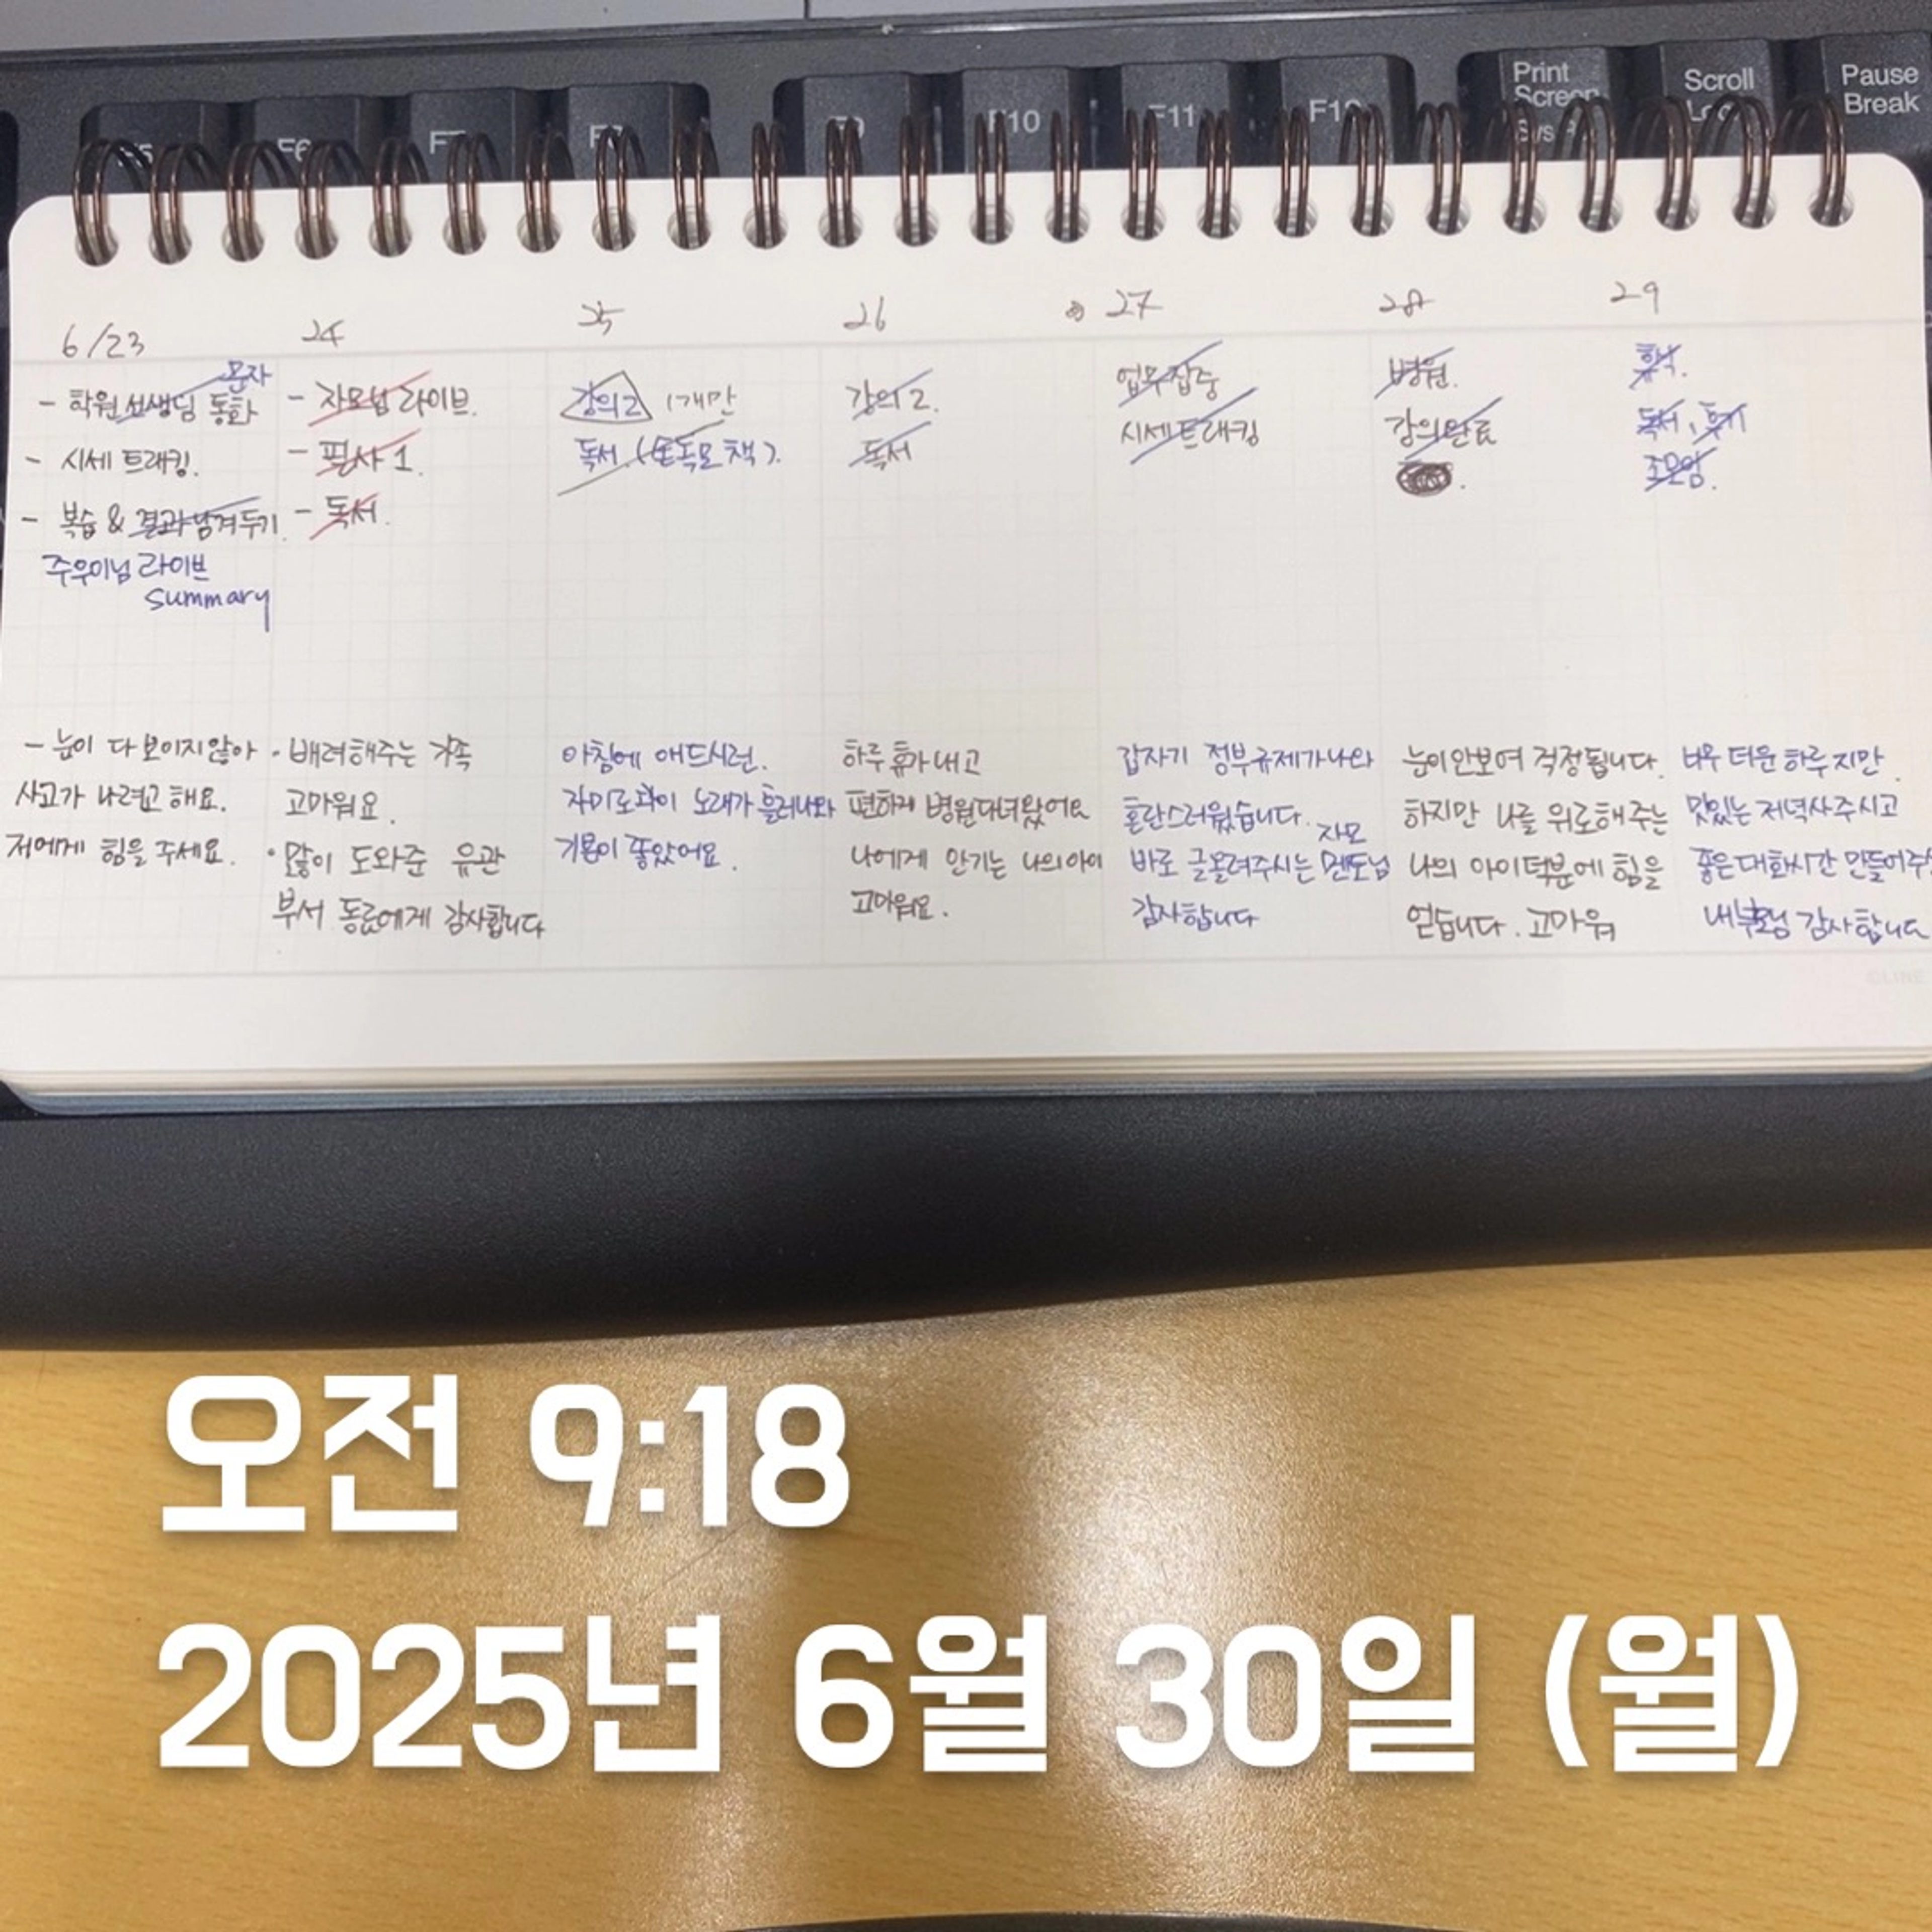 F6
F9
F10
F11
Print
Screen
Scroll
Pause
Break
6/23
24
25
26
27
28
29
문자
- 학원 선생님 통화
- 시세 트래킹.
- 복습 & 결과 남겨두기.
주우이님 라이브
summary
- 자모님 라이브.
- 필사 1.
- 독서.
강의2 1개만
독서. (돈독모 책).
강의 2.
독서
업무 집중
시세트래킹
병원.
강의완료
휴식.
독서, 후기
조모임.
- 눈이 다 보이지 않아
사고가 나려고 해요.
저에게 힘을 주세요.
· 배려해주는 가족
고마워요.
· 많이 도와준 유관
부서 동료에게 감사합니다
아침에 애드시런.
자미로콰이 노래가 흘러나와
기분이 좋았어요.
하루 휴가 내고
편하게 병원다녀왔어요
나에게 안기는 나의 아이
고마워요.
갑자기 정부규제가 나와
혼란스러웠습니다.
자모
바로 글올려주시는 멘토님
감사합니다
눈이 안보여 걱정됩니다.
하지만 나를 위로해주는
나의 아이 덕분에 힘을
얻습니다. 고마워
너무 더운 하루지만
맛있는 저녁사주시고
좋은 대화시간 만들어주신
감사합니다
©LINE
오전 9:18
2025년 6월 30일 (월)